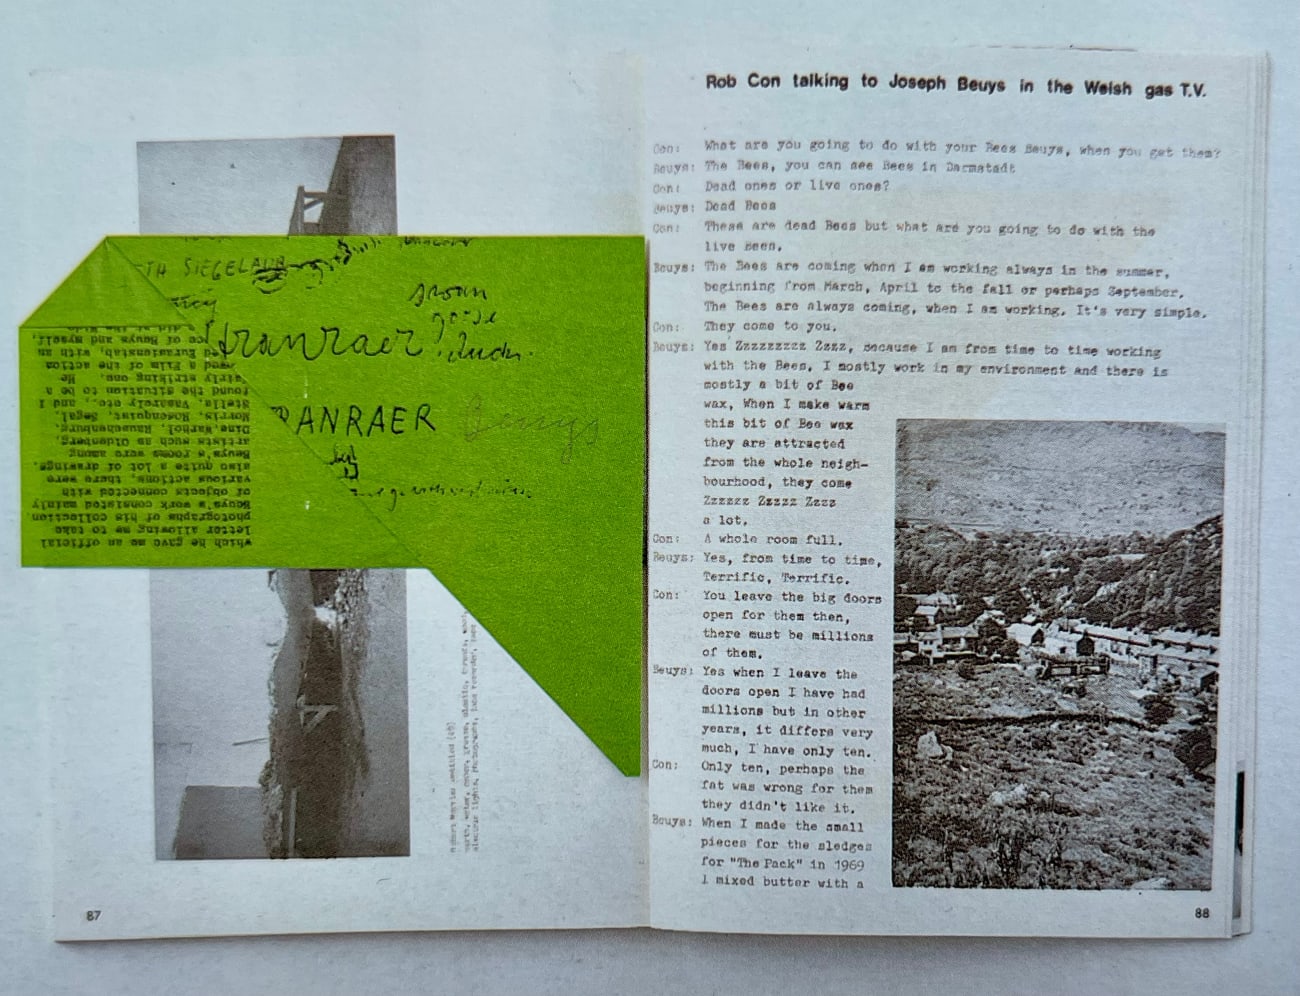 TH SIEGELAUB
Stranraer
swan
goose
duck.
RANRAER Beuys
by
which he gave me an official
letter allowing me to take
photographs of his collection.
Beuys's work consisted mainly
of objects connected with
various actions, there were
also quite a lot of drawings.
Beuys's rooms were among
artists such as Oldenberg,
Dine, Warhol, Rauschenburg,
Morris, Rosenquist, Segal,
Stella, Vasarely etc., and I
found the situation to be a
fairly striking one. He
a Film of the action
Eurasienstab, with an
of Beuys and myself.
Robert Morris untitled (69)
87
Rob Con talking to Joseph Beuys in the Welsh gas T.V.
Con: What are you going to do with your Bees Beuys, when you get them?
Beuys: The Bees, you can see Bees in Darmstadt
Con: Dead ones or live ones?
Beuys: Dead Bees
Con: These are dead Bees but what are you going to do with the
live Bees.
Beuys: The Bees are coming when I am working always in the summer,
beginning from March, April to the fall or perhaps September.
The Bees are always coming, when I am working. It's very simple.
Con: They come to you.
Beuys: Yes Zzzzzzzzz Zzzz, because I am from time to time working
with the Bees, I mostly work in my environment and there is
mostly a bit of Bee
wax, When I make warm
this bit of Bee wax
they are attracted
from the whole neigh-
bourhood, they come
Zzzzzz Zzzzz Zzzz
a lot.
Con: A whole room full.
Beuys: Yes, from time to time,
Terrific, Terrific.
Con: You leave the big doors
open for them then,
there must be millions
of them.
Beuys: Yes when I leave the
doors open I have had
millions but in other
years, it differs very
much, I have only ten.
Con: Only ten, perhaps the
fat was wrong for them
they didn't like it.
Beuys: When I made the small
pieces for the sledges
for "The Pack" in 1969
I mixed butter with a
88